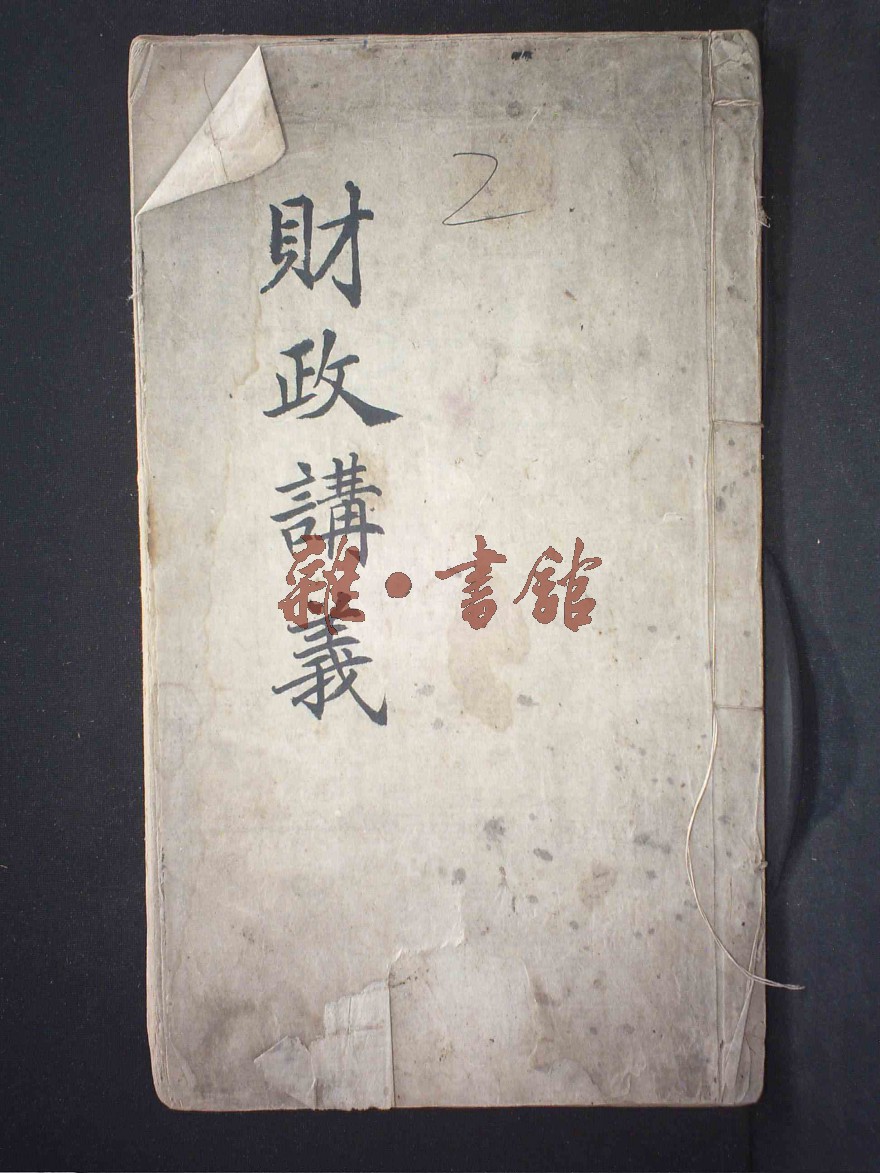 財政講義
2
雜·書館